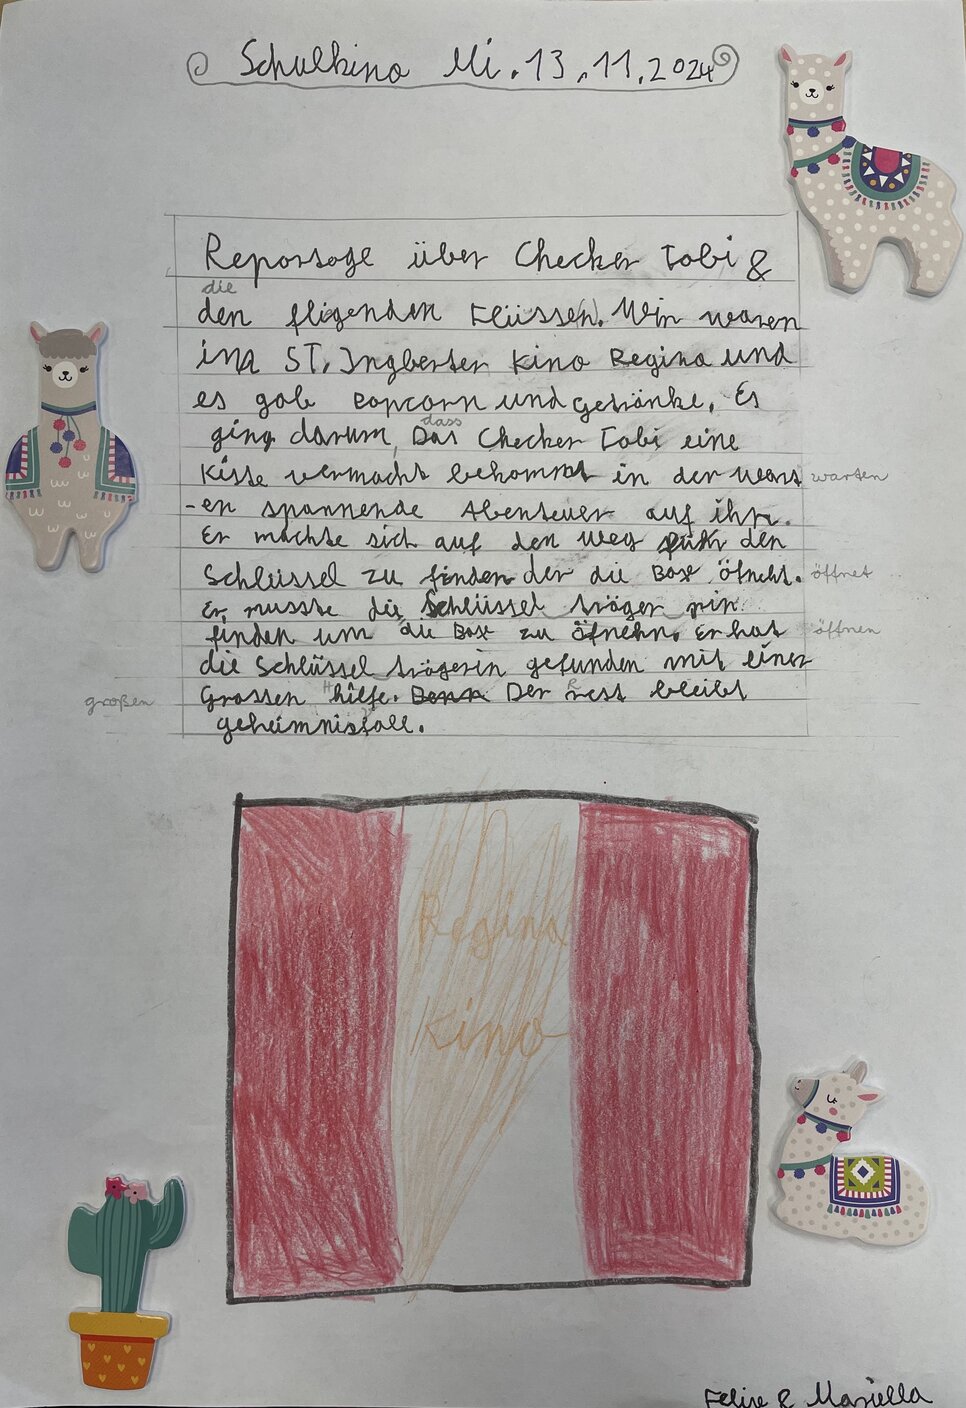 Schulkino Mi. 13.11.2024
Reportage über Checker Tobi &
die
den fligenden Flüssen. Wir waren
im ST. Ingberter Kino Regina und
es gab Popcorn und Getränke. Es
dass
ging darum, Das Checker Tobi eine
Kiste vermacht bekommt in der wart warten
-en spannende Abenteuer auf ihn.
Er machte sich auf den weg den
Schlüssel zu finden der die Box öfnet. öffnet
Er musste die Schlüssel träger rin
finden um die Box zu öfnehn. Er hat öffnen
die Schlüssel trägerin gefunden mit einer
großen Grossen hilfe. Denn Der rest bleibt
geheimnisfoll.
Regina
Kino
Felix & Mariella